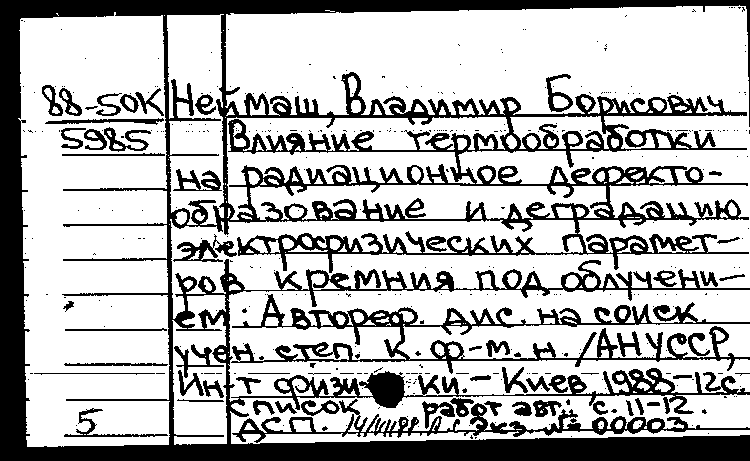 88-50К Неймаш, Владимир Борисович
5985 Влияние термообработки
на радиационное дефекто-
образование и деградацию
электрофизических парамет-
ров кремния под облучени-
ем: Автореф. дис. на соиск.
учен. степ. к. ф-м. н. /АН УССР,
Ин-т физи- ки. - Киев, 1988-12с.
список работ авт.: с. 11-12.
5 ДСП. Экз. № 00003.